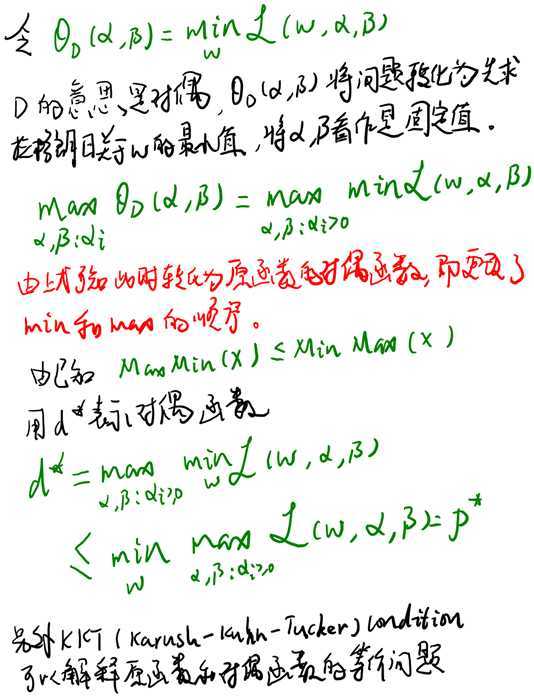 令 θ_D(α,β) = min_w L(w,α,β)
D的意思是对偶,θ_D(α,β)将问题转化为先求
拉格朗日关于w的最小值,将α,β看作是固定值。
max_{α,β:αi} θ_D(α,β) = max_{α,β:αi>0} min L(w,α,β)
由上式知此时转化为原函数的对偶函数,即更改了
min和max的顺序。
由已知 MaxMin(X) ≤ MinMax(X)
用d*表示对偶函数
d* = max_{α,β:αi≥0} min_w L(w,α,β)
≤ min_w max_{α,β:αi≥0} L(w,α,β) = p*
另外KKT(Karush-Kuhn-Tucker)condition
可以解释原函数和对偶函数的等价问题